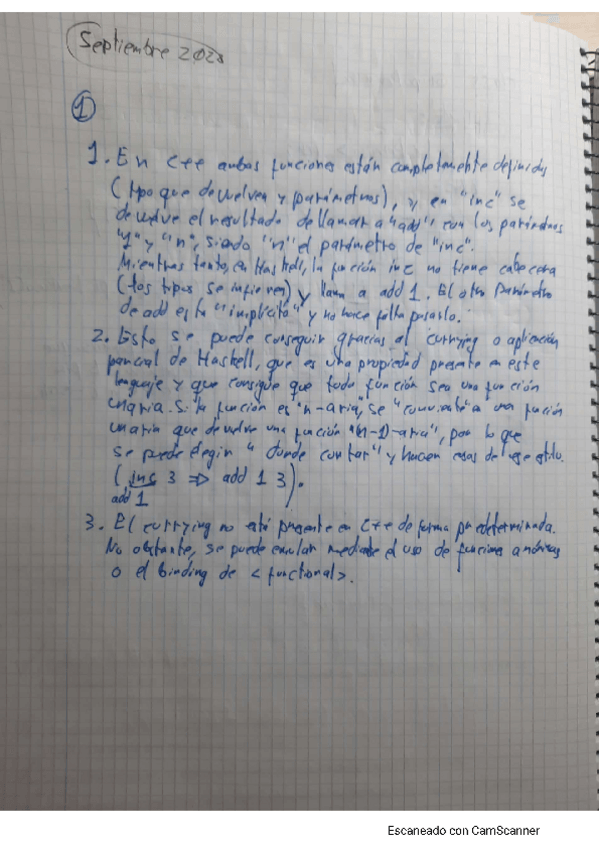 Septiembre 2023
1
1. En C++ ambas funciones están completamente definidas
(tipo que devuelven y parámetros), y en "inc" se
devuelve el resultado de llamar a "add" con los parámetros
"1" y "n", siendo "n" el parámetro de "inc".
Mientras tanto, en Haskell, la función inc no tiene cabecera
(los tipos se infieren) y llama a add 1. El otro parámetro
de add está "implícito" y no hace falta pasarlo.
2. Esto se puede conseguir gracias al currying o aplicación
parcial de Haskell, que es una propiedad presente en este
lenguaje y que consigue que toda función sea una función
unaria. Si la función es "n-aria", se "convierte" a una función
unaria que devuelve una función "(n-1)-aria", por lo que
se puede elegir "donde cortar" y hacer cosas de ese estilo.
(inc 3 => add 1 3).
add 1
3. El currying no está presente en C++ de forma predeterminada.
No obstante, se puede emular mediante el uso de funciones anónimas
o el binding de <functional>.
Escaneado con CamScanner